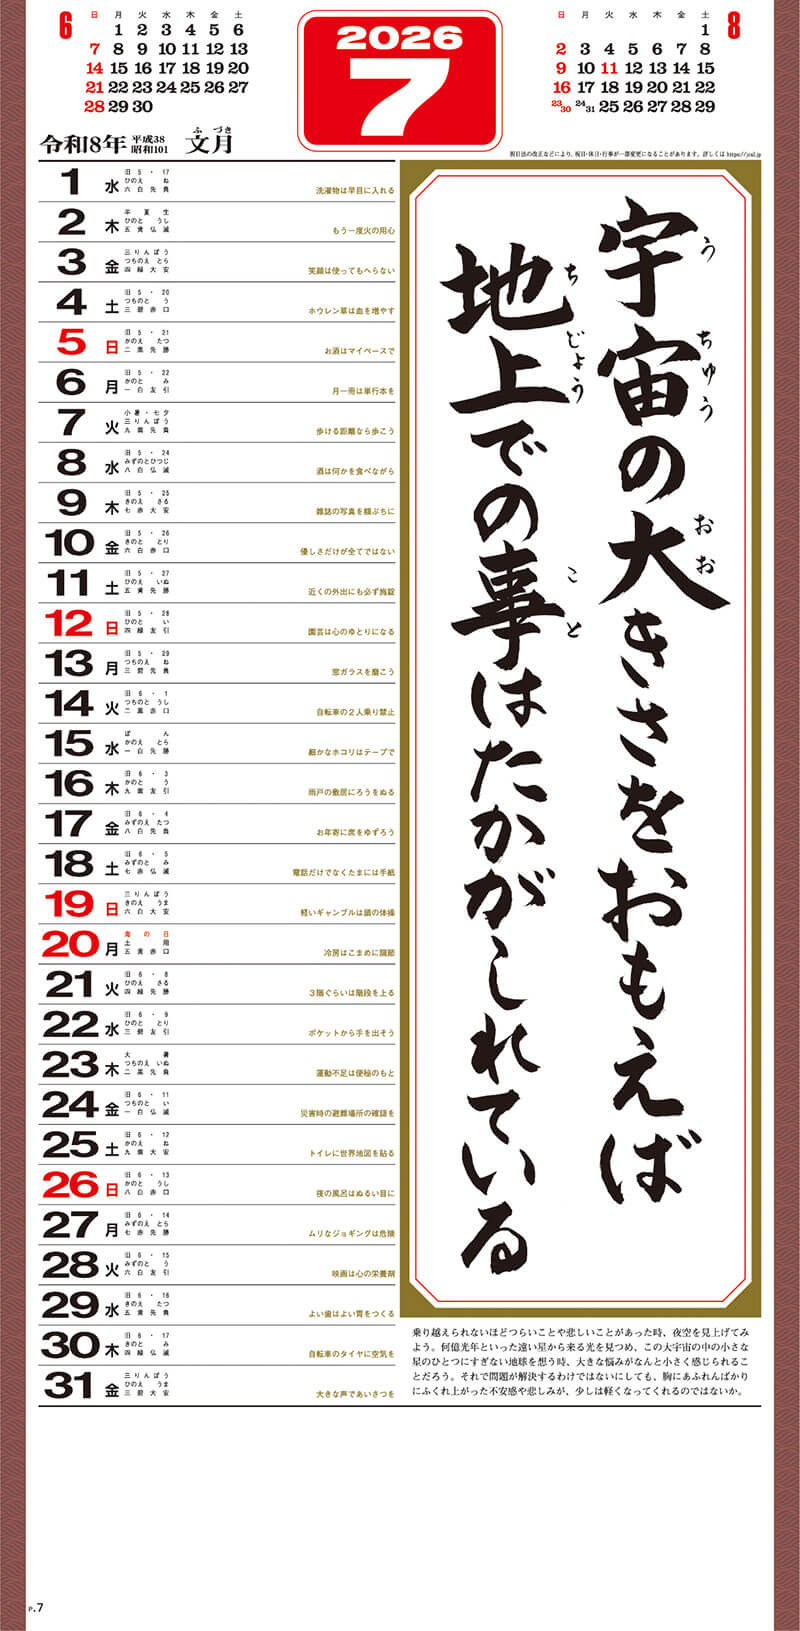 6
日 月 火 水 木 金 土
1 2 3 4 5 6
7 8 9 10 11 12 13
14 15 16 17 18 19 20
21 22 23 24 25 26 27
28 29 30
2026
7
8
日 月 火 水 木 金 土
1
2 3 4 5 6 7 8
9 10 11 12 13 14 15
16 17 18 19 20 21 22
23/30 24/31 25 26 27 28 29
令和8年 平成38 昭和101 文月 ふづき
祝日法の改正などにより、祝日・休日・行事が一部変更になることがあります。詳しくは https://jcal.jp
1 水 旧5・17 ひのえ ね 六白先負 洗濯物は早目に入れる
2 木 半夏生 ひのと うし 五黄仏滅 もう一度火の用心
3 金 三りんぼう つちのえ とら 四緑大安 笑顔は使ってもへらない
4 土 旧5・20 つちのと う 三碧赤口 ホウレン草は血を増やす
5 日 旧5・21 かのえ たつ 二黒先勝 お酒はマイペースで
6 月 旧5・22 かのと み 一白友引 月一冊は単行本を
7 火 小暑・七夕 三りんぼう 九紫先負 歩ける距離なら歩こう
8 水 旧5・24 みずのとひつじ 八白仏滅 酒は何かを食べながら
9 木 旧5・25 きのえ さる 七赤大安 雑誌の写真を額ぶちに
10 金 旧5・26 きのと とり 六白赤口 優しさだけが全てではない
11 土 旧5・27 ひのえ いぬ 五黄先勝 近くの外出にも必ず施錠
12 日 旧5・28 ひのと い 四緑友引 園芸は心のゆとりになる
13 月 旧5・29 つちのえ ね 三碧先負 窓ガラスを磨こう
14 火 旧6・1 つちのと うし 二黒赤口 自転車の2人乗り禁止
15 水 ぼん かのえ とら 一白先勝 細かなホコリはテープで
16 木 旧6・3 かのと う 九紫友引 雨戸の敷居にろうをぬる
17 金 旧6・4 みずのえ たつ 八白先負 お年寄に席をゆずろう
18 土 旧6・5 みずのと み 七赤仏滅 電話だけでなくたまには手紙
19 日 三りんぼう きのえ うま 六白大安 軽いギャンブルは頭の体操
20 月 海の日 土用 五黄赤口 冷房はこまめに調節
21 火 旧6・8 ひのえ さる 四緑先勝 3階ぐらいは階段を上る
22 水 旧6・9 ひのと とり 三碧友引 ポケットから手を出そう
23 木 大暑 つちのえ いぬ 二黒先負 運動不足は便秘のもと
24 金 旧6・11 つちのと い 一白仏滅 災害時の避難場所の確認を
25 土 旧6・12 かのえ ね 九紫大安 トイレに世界地図を貼る
26 日 旧6・13 かのと うし 八白赤口 夜の風呂はぬるい目に
27 月 旧6・14 みずのえ とら 七赤先勝 ムリなジョギングは危険
28 火 旧6・15 みずのと う 六白友引 映画は心の栄養剤
29 水 旧6・16 きのえ たつ 五黄先負 よい歯はよい胃をつくる
30 木 旧6・17 きのと み 四緑仏滅 自転車のタイヤに空気を
31 金 三りんぼう ひのえ うま 三碧大安 大きな声であいさつを
宇宙の大きさをおもえば
うちゅう おお
地上での事はたかがしれている
ちじょう こと
乗り越えられないほどつらいことや悲しいことがあった時、夜空を見上げてみ
よう。何億光年といった遠い星から来る光を見つめ、この大宇宙の中の小さな
星のひとつにすぎない地球を想う時、大きな悩みがなんと小さく感じられるこ
とだろう。それで問題が解決するわけではないにしても、胸にあふれんばかり
にふくれ上がった不安感や悲しみが、少しは軽くなってくれるのではないか。
P.7